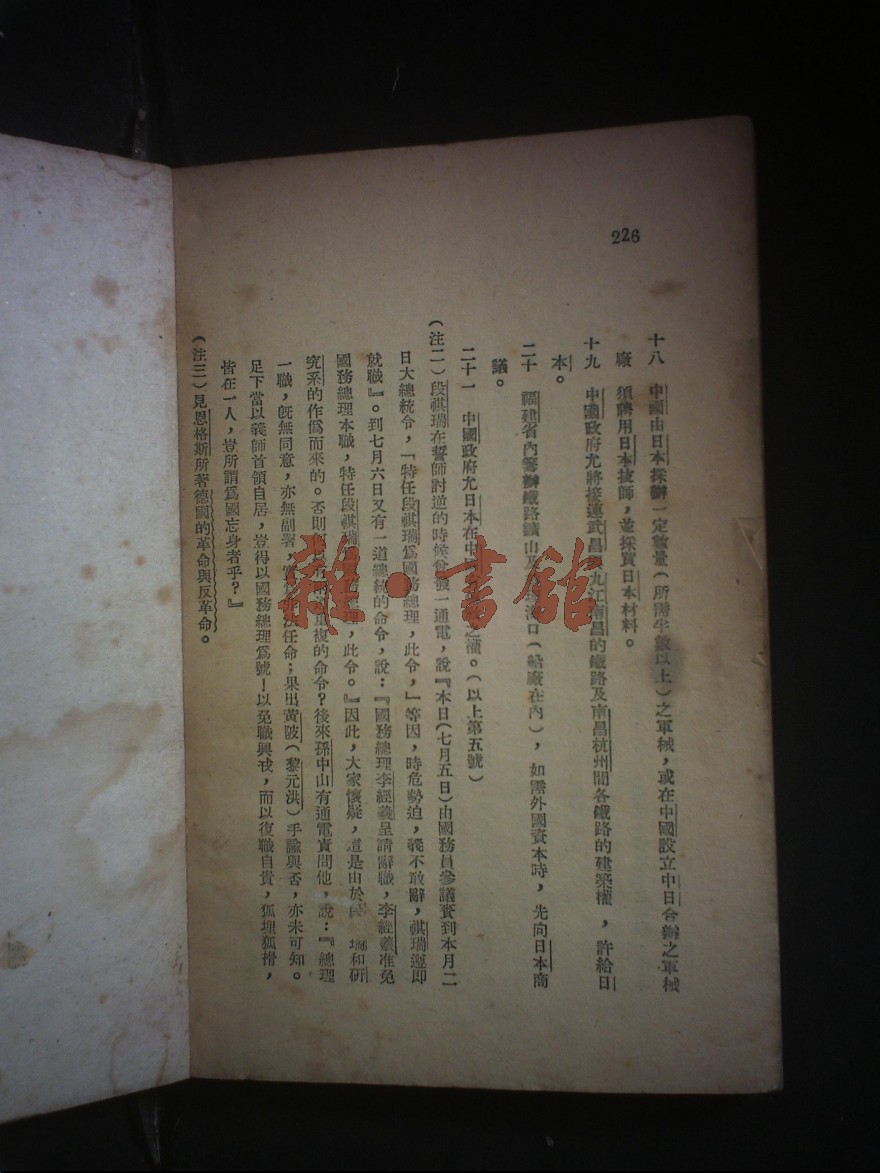 226
十八　中國由日本採辦一定數量(所需半數以上)之軍械，或在中國設立中日合辦之軍械
廠　須聘用日本技師，並採買日本材料。
十九　中國政府允將接連武昌 九江南昌的鐵路及南昌杭州間各鐵路的建築權，許給日
本。
二十　福建省內籌辦鐵路鑛山及 港口(船廠在內)，如需外國資本時，先向日本商
議。
二十一　中國政府允日本在中 之權。(以上第五號)
(注二)段祺瑞在誓師討逆的時候曾發一通電，說『本日(七月五日)由國務員參議賫到本月二
日大總統令，「特任段祺瑞爲國務總理，此令，」等因，時危勢迫，義不敢辭，祺瑞遵即
就職』。到七月六日又有一道總統的命令，說：『國務總理李經羲呈請辭職，李經羲准免
國務總理本職，特任段祺瑞 總理，此令。』因此，大家懷疑，這是由於 瑞和研
究系的作僞而來的。否則 重複的命令？後來孫中山有通電責問他，說：『總理
一職，旣無同意，亦無副署，實 法任命；果出黃陂(黎元洪)手諭與否，亦未可知。
足下當以義師首領自居，豈得以國務總理爲號！以免職興戎，而以復職自貴，狐埋狐搰，
皆在一人，豈所謂爲國忘身者乎？』
(注三)見恩格斯所著德國的革命與反革命。
雜·書館